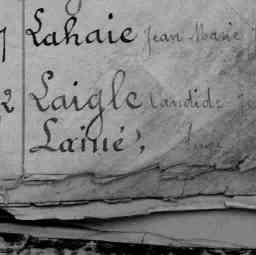 7 Lahaie Jean Marie
2 Laigle Candide
Lainé,